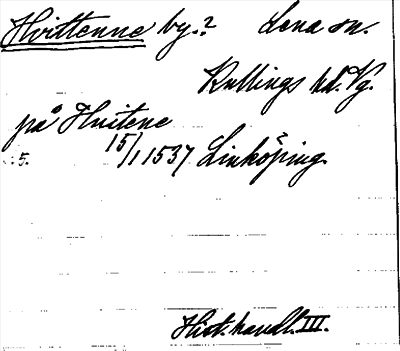 Hvittenne by.? Lena sn.
Kullings hd. Vg.
på Hvitene
15/1 1537 Linköping.
:5.
Hist. handl. III.